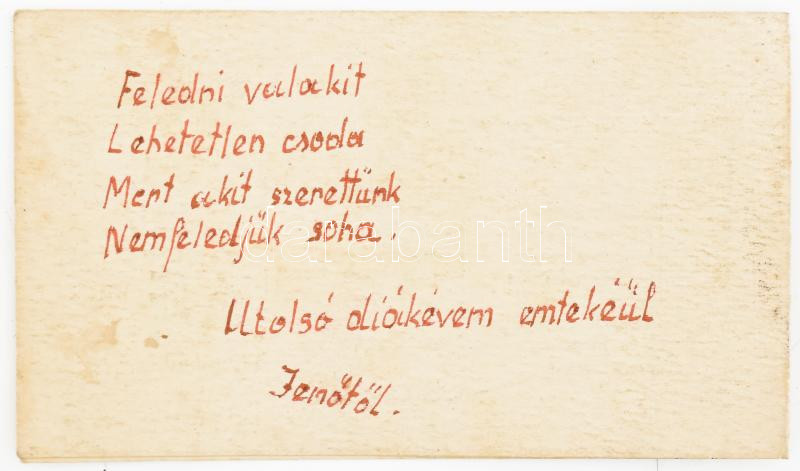 Feledni valakit
Lehetetlen csoda
Mert akit szerettünk
Nemfeledjük soha.
Utolsó diákévem emtekéül
Jenőtől.
darabanth